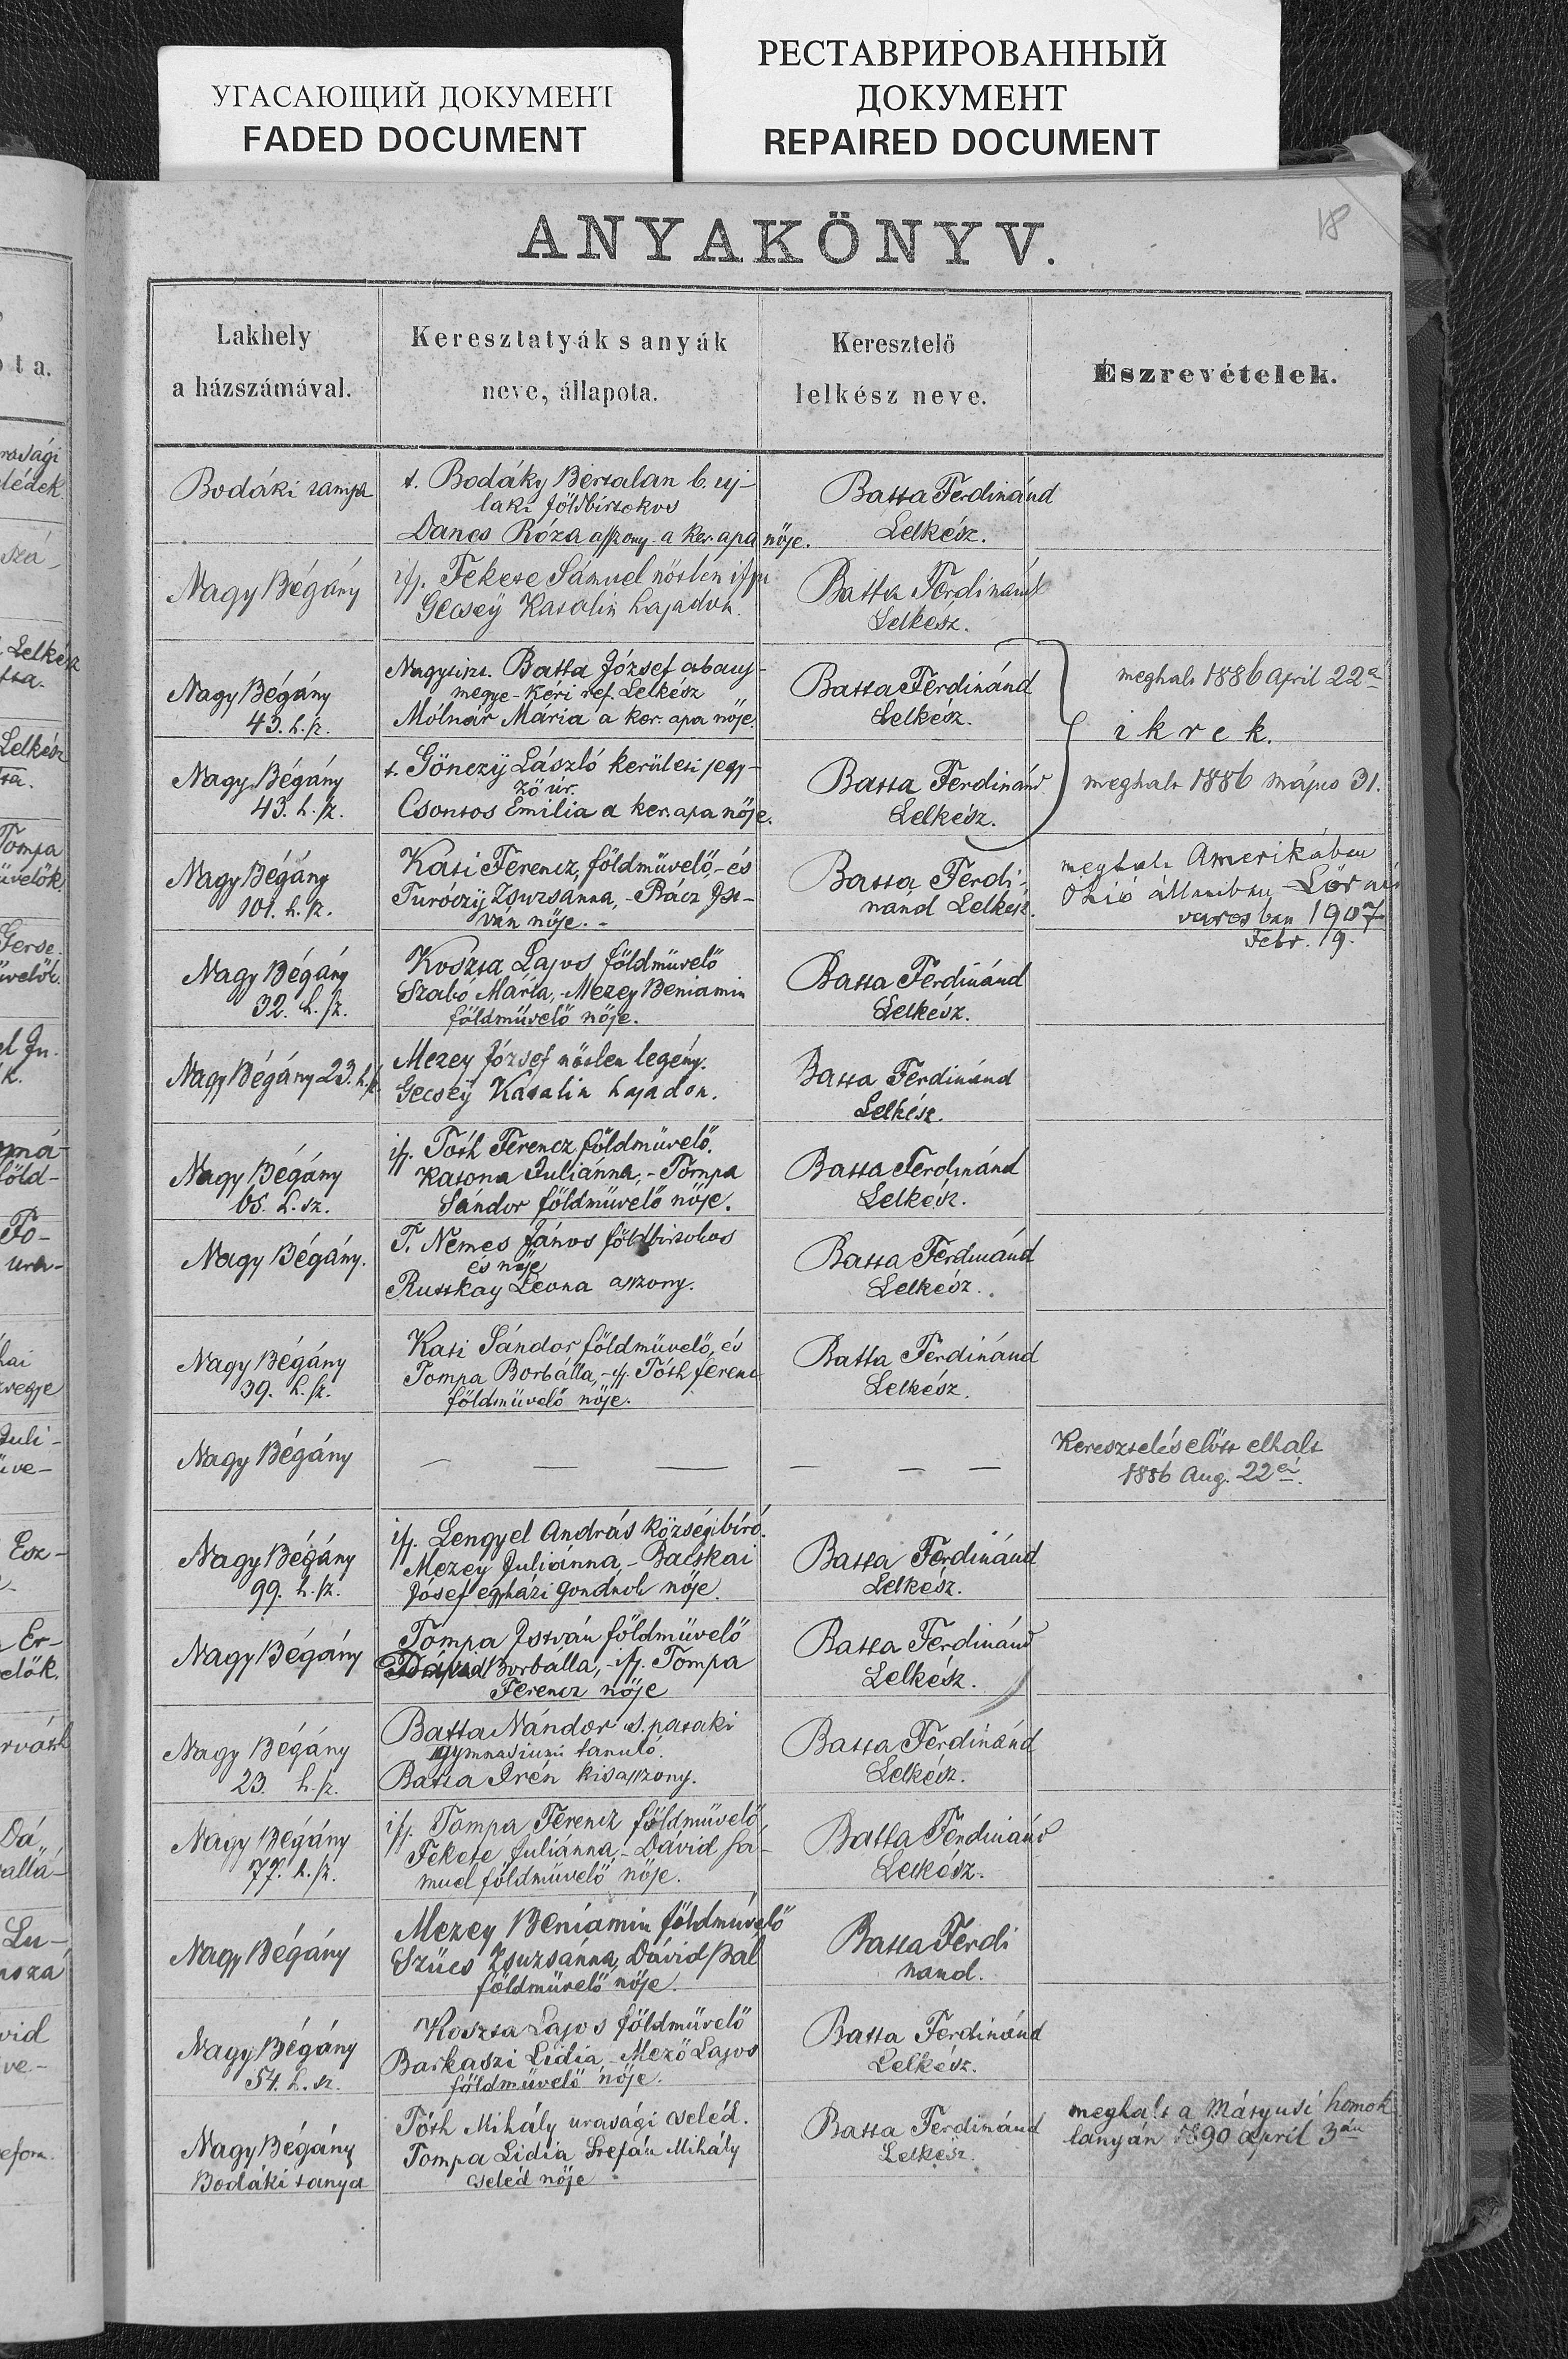 УГАСАЮЩИЙ ДОКУМЕНТ
FADED DOCUMENT
РЕСТАВРИРОВАННЫЙ
ДОКУМЕНТ
REPAIRED DOCUMENT
18
ANYAKÖNYV.
Lakhely
a házszámával.
Keresztatyák s anyák
neve, állapota.
Keresztelő
lelkész neve.
Észrevételek.
Bodáki tanya
t. Bodáky Bertalan b. uj-
laki földbirtokos
Dancs Róza asszony a ker. apa nője.
Batta Ferdinánd
Lelkész.
Nagy Bégány
ifj. Fekete Sámuel nőtlen ifju
Gecsey Katalin hajadon.
Batta Ferdinánd
Lelkész.
Nagy Bégány
43. h. sz.
Nagytiszt. Batta József abauj-
megye-Kéri ref. Lelkész
Mólnár Mária a ker. apa nője.
Batta Ferdinánd
Lelkész.
meghalt 1886 April 22én
ikrek.
Nagy Bégány
43. h. sz.
t. Gönczÿ László kerületi jegy-
ző úr.
Csontos Emilia a ker. apa nője.
Batta Ferdinánd
Lelkész.
meghalt 1886 május 31.
Nagy Bégány
101. h. sz.
Kati Ferencz, földmüvelő, és
Turóczÿ Zsuzsanna, - Rácz Ist-
ván nője. -
Batta Ferdi-
nand Lelkész.
meghalt Amerikában
Ohió államban Lorain
varosban 1907
Febr. 19.
Nagy Bégány
32. h. sz.
Koszta Lajos földmüvelő
Szabó Mária, - Mezey Beniamin
földmüvelő nője.
Batta Ferdinánd
Lelkész.
Nagy Bégány 23. h. sz.
Mezey József nőtlen legény.
Gecseÿ Katalin hajadon.
Batta Ferdinánd
Lelkész.
Nagy Bégány
65. h. sz.
ifj. Tóth Ferencz földmüvelő.
Katona Juliánna, - Tompa
Sándor földmüvelő nője.
Batta Ferdinánd
Lelkész.
Nagy Bégány.
T. Nemes János földbirtokos
és nője
Ruttkay Leona asszony.
Batta Ferdinánd
Lelkész.
Nagy Bégány
39. h. sz.
Kati Sándor földmüvelő, és
Tompa Borbálla, - ifj. Tóth Ferencz
földmüvelő nője.
Batta Ferdinánd
Lelkész.
Nagy Bégány
— — — — — —
Keresztelés előtt elhalt
1886 Aug. 22én.
Nagy Bégány
99. h. sz.
ifj. Lengyel András községi bíró.
Mezey Juliánna, - Bacskai
Jósef egyházi gondnok nője.
Batta Ferdinánd
Lelkész.
Nagy Bégány
Tompa István földmüvelő
Dávid Borbálla, - ifj. Tompa
Ferencz nője
Batta Ferdinánd
Lelkész.
Nagy Bégány
23. h. sz.
Batta Nándor s. pataki
gymnasiumi tanuló.
Batta Irén kisasszony.
Batta Ferdinánd
Lelkész.
Nagy Bégány
77. h. sz.
ifj. Tompa Ferencz földmüvelő,
Fekete Juliánna, - Dávid Sá-
muel földmüvelő nője.
Batta Ferdinánd
Lelkész.
Nagy Bégány
Mezey Beniamin földmüvelő
Szücs Zsuzsánna, Dávid Pál
földmüvelő nője.
Batta Ferdi
nand.
Nagy Bégány
54. h. sz.
Koszta Lajos földmüvelő
Barkaszi Lidia, - Mező Lajos
földmüvelő nője.
Batta Ferdinánd
Lelkész.
Nagy Bégány
Bodáki tanya
Tóth Mihály urasági cseléd.
Tompa Lidia Stefán Mihály
cseléd nője
Batta Ferdinánd
Lelkész.
meghalt a Mátyusi homok
tanyán 1890 April 3án